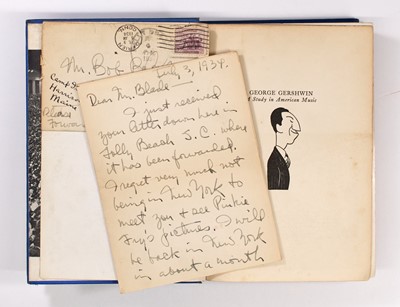 Mr. Bob
Camp
Harrison
Maine
Please
Forward
July 3, 1934.
Dear Mr. Blade
I just received
your letter down here in
Folly Beach S.C. where
it has been forwarded.
I regret very much not
being in New York to
meet you & see Pinkie
Fry's pictures. I will
be back in New York
in about a month
GEORGE GERSHWIN
Study in American Music